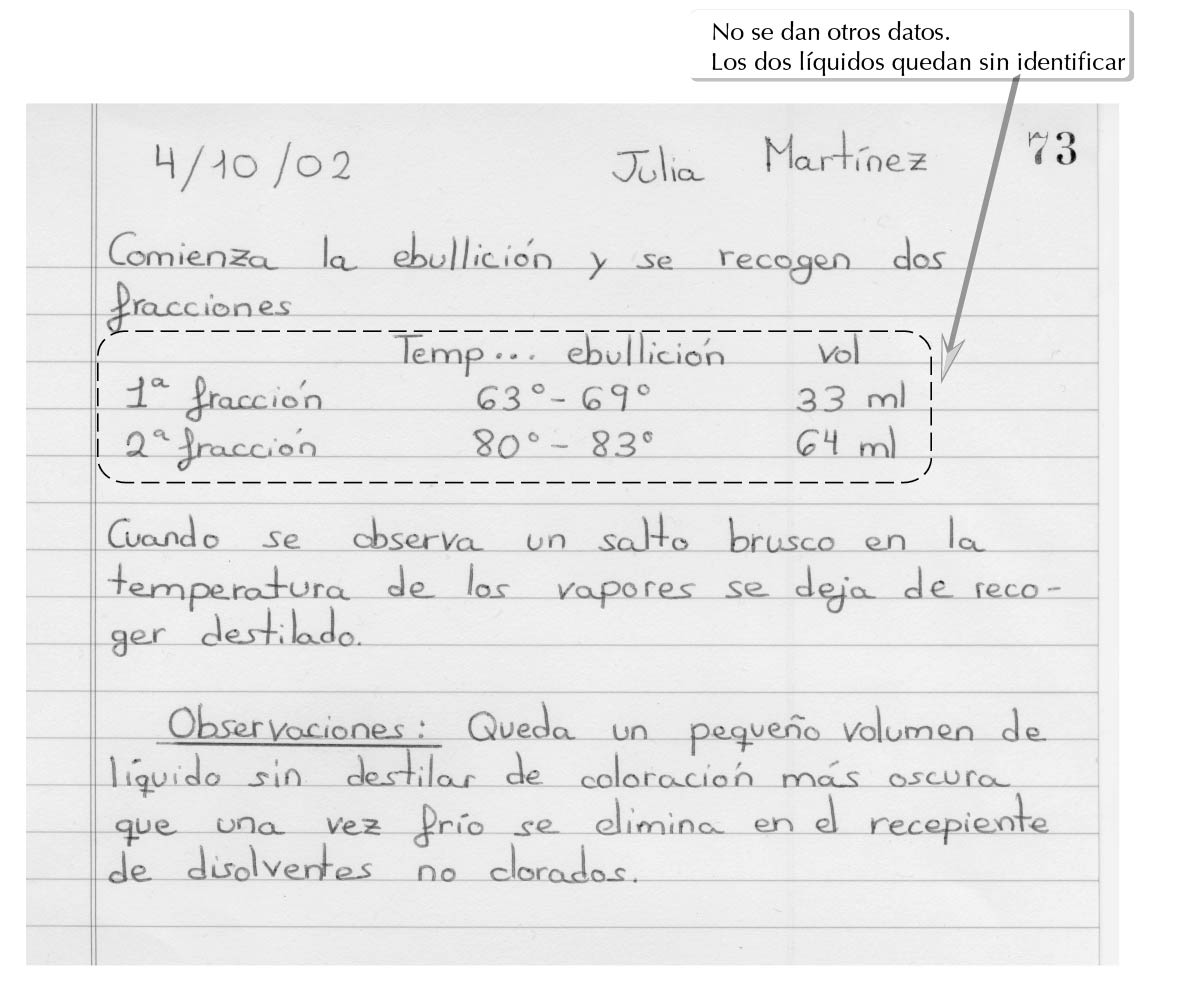 No se dan otros datos.
Los dos líquidos quedan sin identificar
4/10/02 Julia Martínez 73
Comienza la ebullición y se recogen dos
fracciones
Temp... ebullición vol
1ª fracción 63° - 69° 33 ml
2ª fracción 80° - 83° 64 ml
Cuando se observa un salto brusco en la
temperatura de los vapores se deja de reco-
ger destilado.
Observaciones: Queda un pequeño volumen de
líquido sin destilar de coloración más oscura
que una vez frío se elimina en el recepiente
de disolventes no clorados.